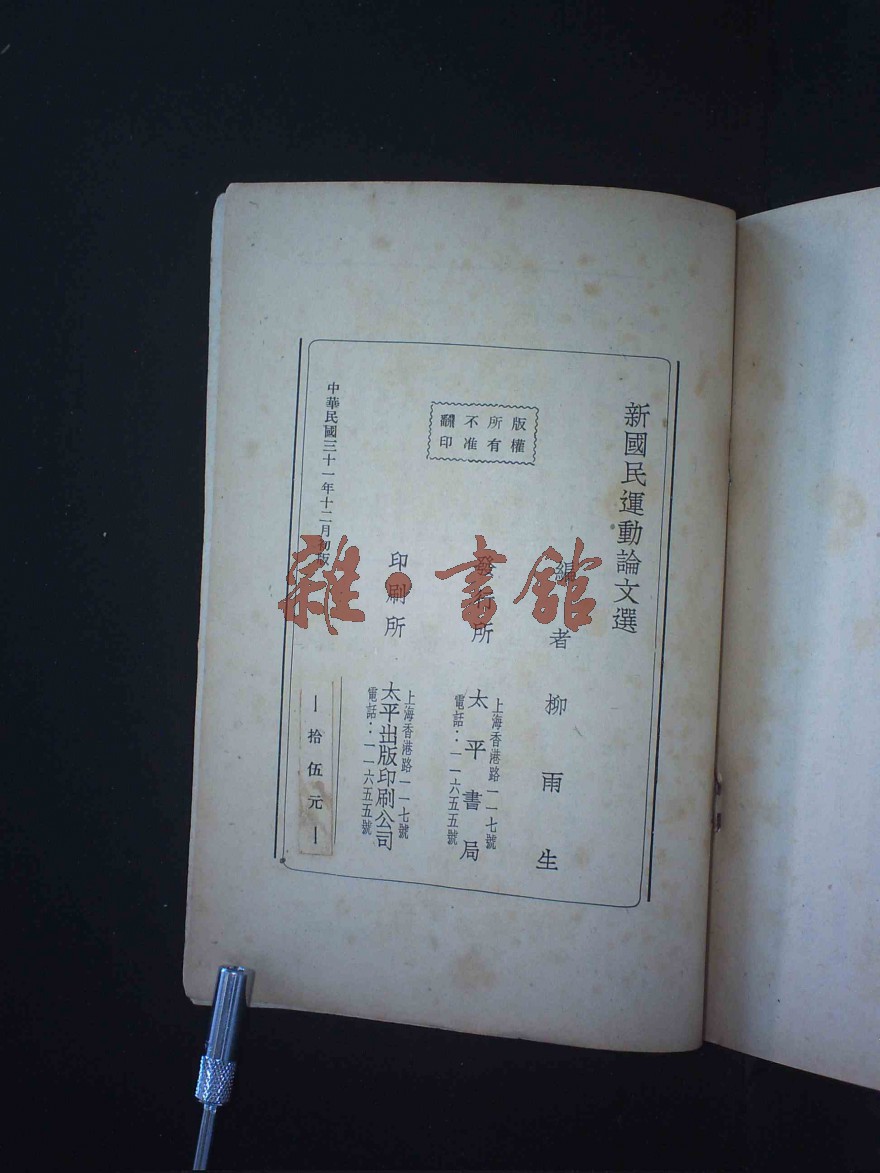 新國民運動論文選
編者 柳雨生
版權
所有
不准
翻印
發行所 太平書局
上海香港路一一七號
電話：一一六五五號
印刷所 太平出版印刷公司
上海香港路一一七號
電話：一一六五五號
中華民國三十一年十二月初版
—拾伍元—
雜·書館